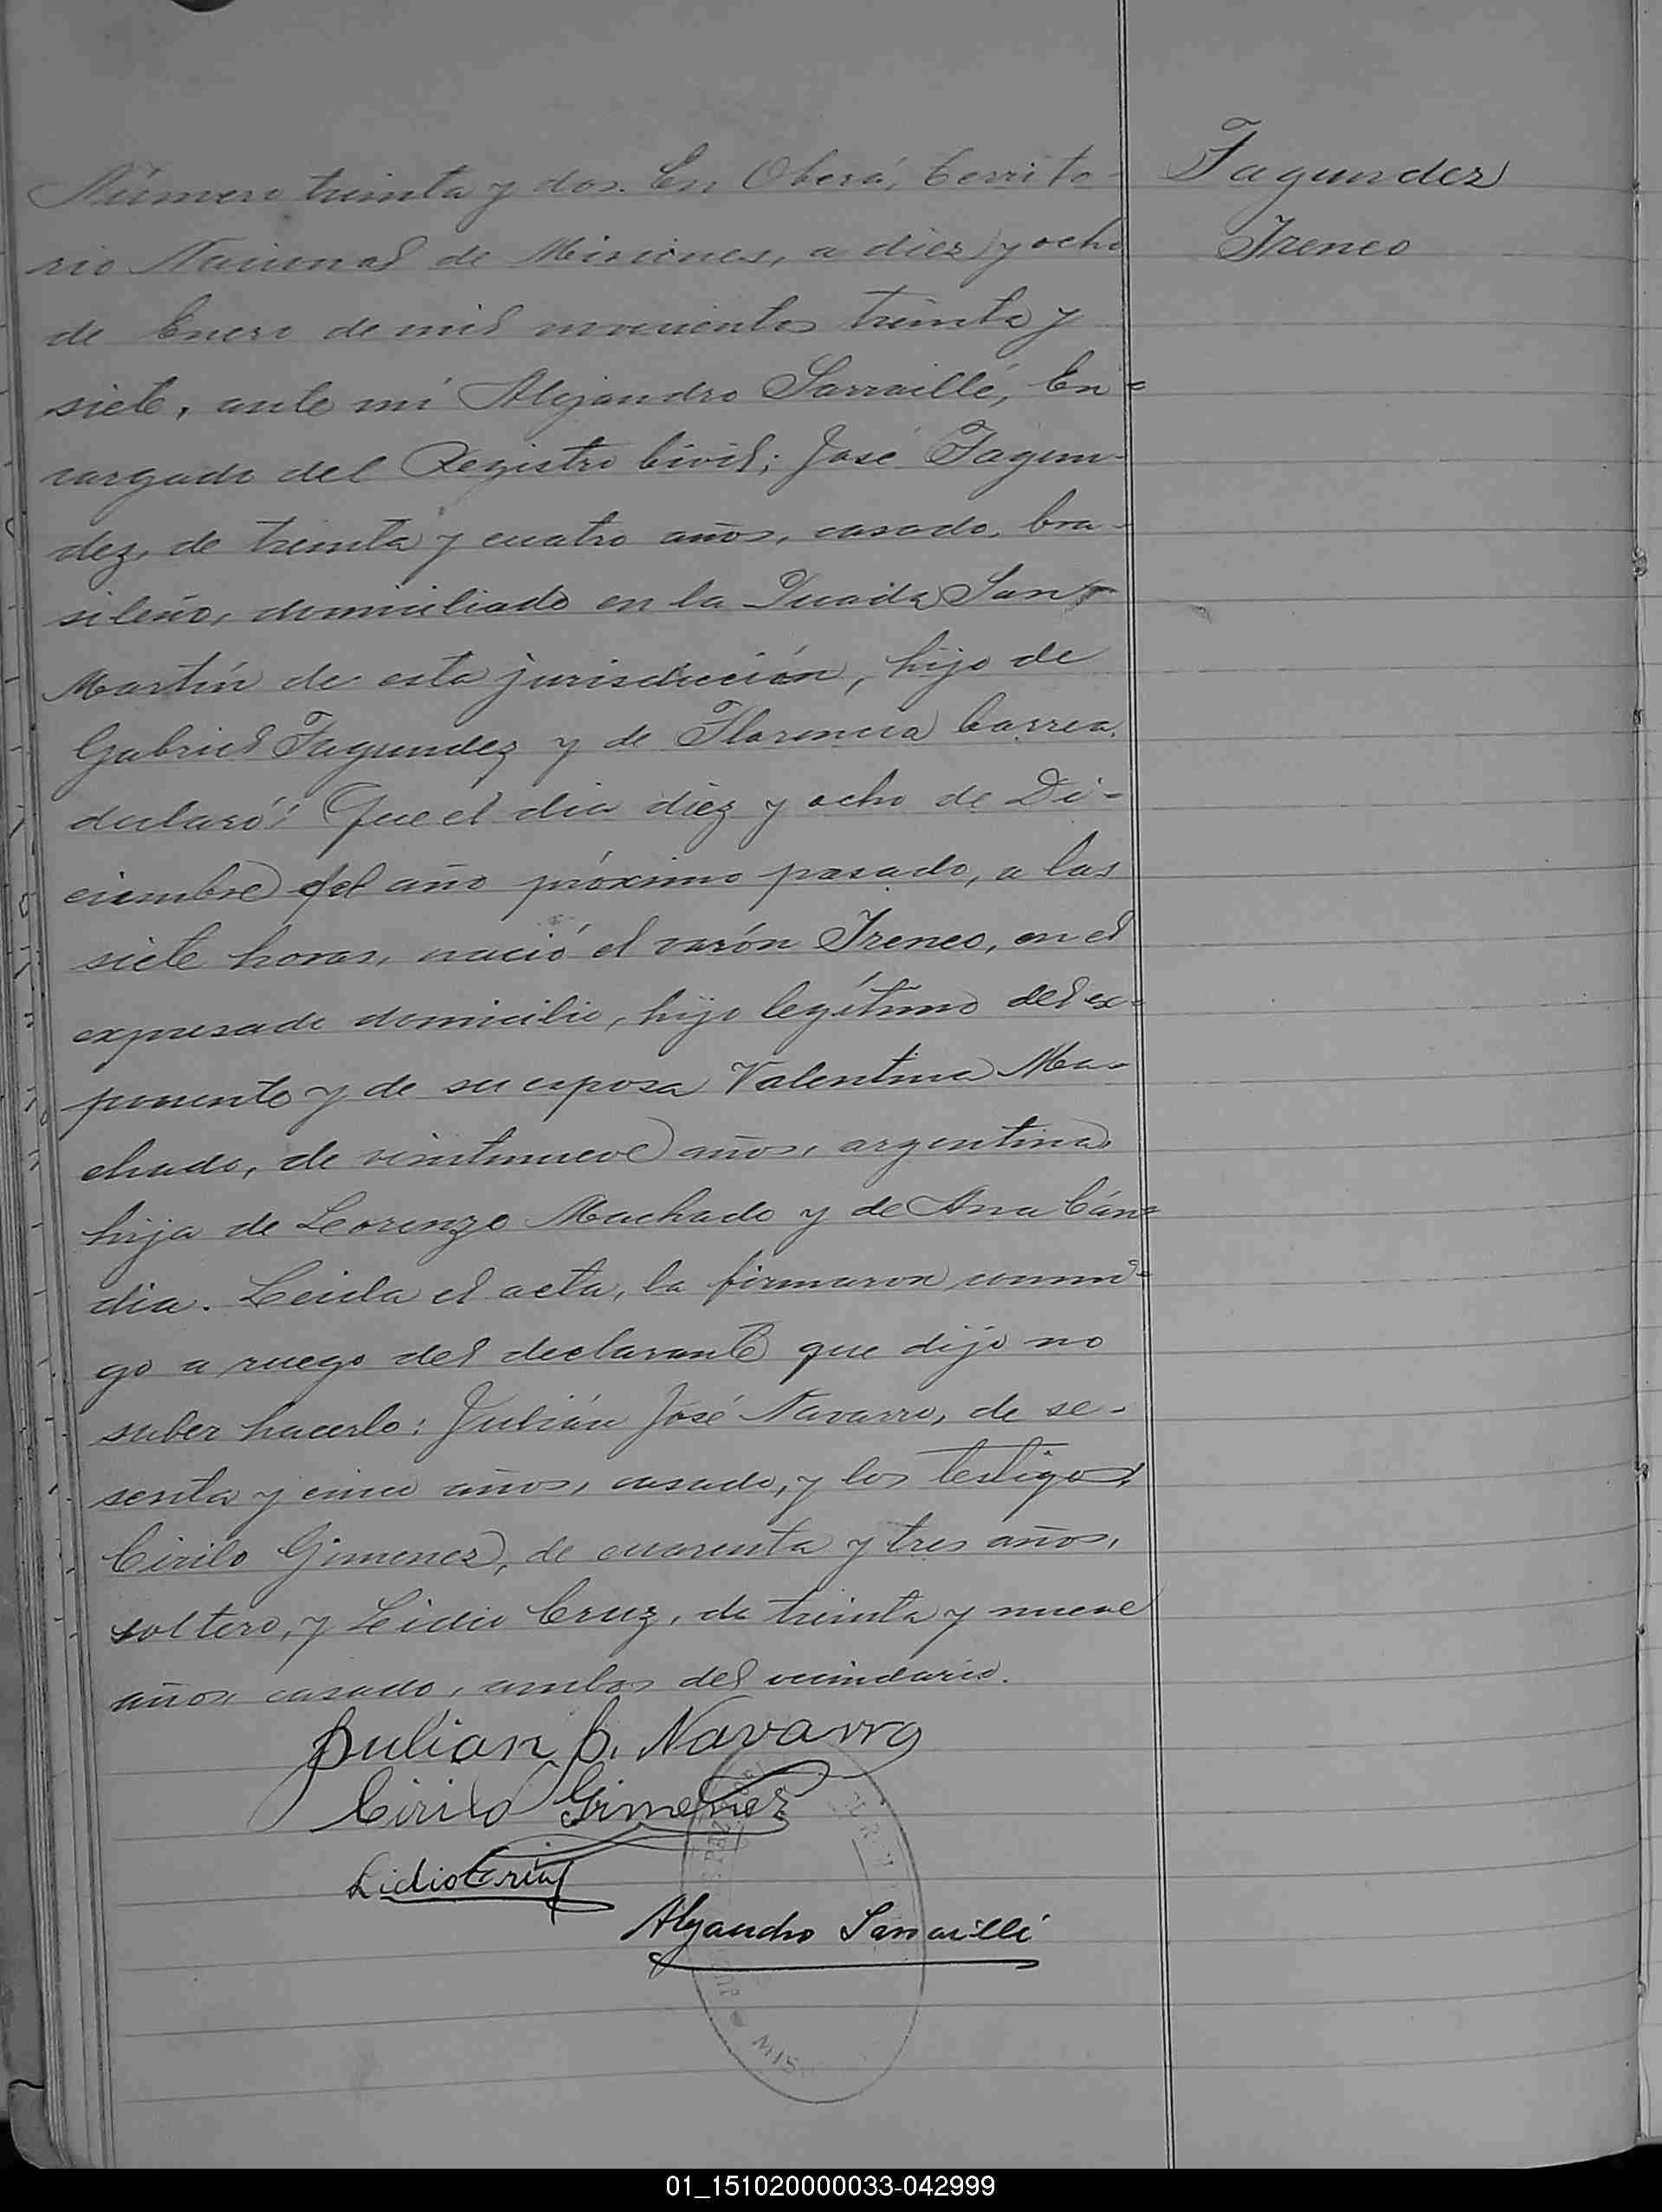 Fagundez
Ireneo
Número treinta y dos. En Oberá, Territo-
rio Nacional de Misiones, a diez y ocho
de Enero de mil novecientos treinta y
siete, ante mí Alejandro Sarraillé, En=
cargado del Registro Civil; José Fagun-
dez, de treinta y cuatro años, casado, bra-
sileño, domiciliado en la Picada San
Martín de esta jurisdicción, hijo de
Gabriel Fagundez y de Florencia Correa,
declaró: Que el día diez y ocho de Di-
ciembre del año próximo pasado, a las
siete horas, nació el varón Ireneo, en el
expresado domicilio, hijo legítimo del ex=
ponente y de su esposa Valentina Ma-
chado, de veintinueve años, argentina,
hija de Lorenzo Machado y de Ana Cán=
dia. Leida el acta, la firmaron conmi=
go a ruego del declarante que dijo no
saber hacerlo: Julián José Navarro, de se-
senta y cinco años, casado, y los testigos,
Cirilo Gimenez, de cuarenta y tres años,
soltero, y Lidio Cruz, de treinta y nueve
años, casado, ambos del vecindario.
Julian J. Navarro
Cirilo Gimenez
Lidio Cruz
Alejandro Sarraillé
MIS.
01_151020000033-042999